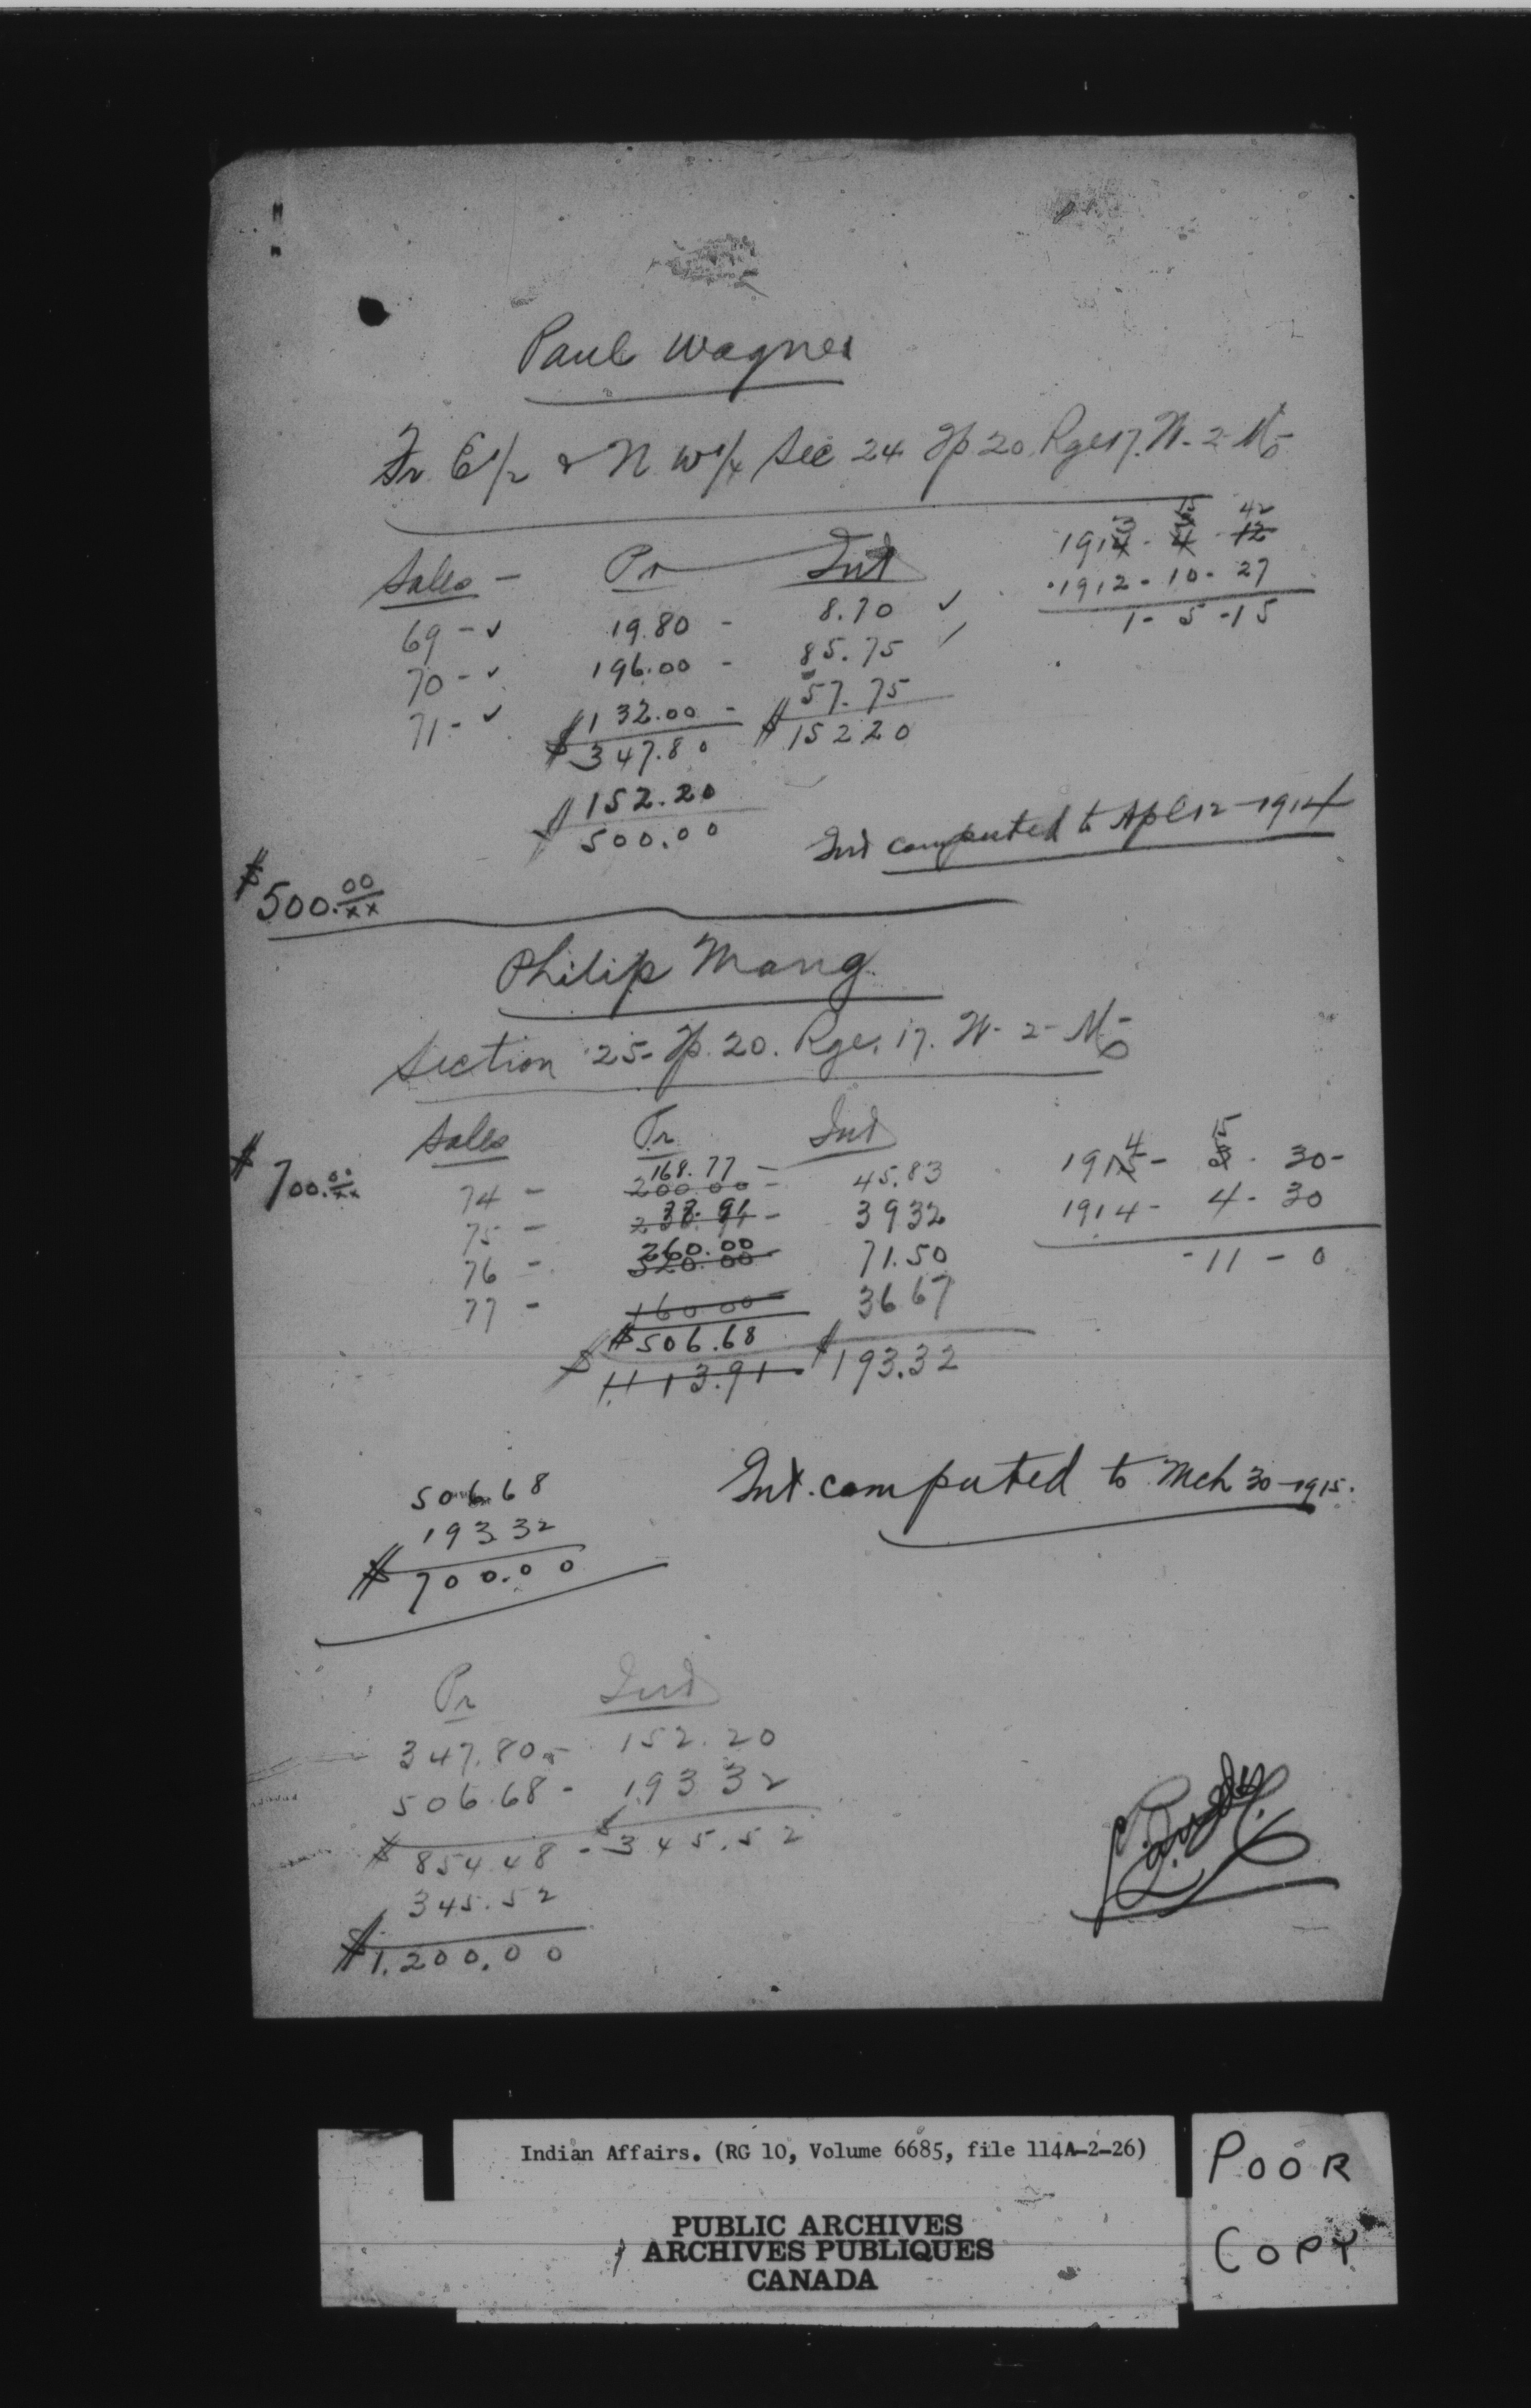 Paul Wagner
Fr. E 1/2 & N. W 1/4 Sec 24 Tp. 20. Rge 17. W-2-M-
Sales - Pr Int
1914 - 4 - 12
3 15 42
1912 - 10 - 27
1 - 5 - 15
69 - ✓ 19.80 - 8.70 ✓
70 - ✓ 196.00 - 85.75 ✓
71 - ✓ $132.00 - 57.75
$347.80 $152 20
$152.20
500.00
Int computed to Apl 12 - 1914
$500.00/xx
Philip Mang.
Section 25 - Tp. 20. Rge. 17. W-2-M-
Sales Pr Int
$700.00/xx
74 - 168.77 - 45.83
200.00 -
75 - 77.91 39 32
238.91 -
76 - 260.00 71.50
320.00
77 - 160.00 36 67
$506.68 $193.32
$1.113.91
4 15
1915 - 3 - 30 -
1914 - 4 - 30
- 11 - 0
Int. computed to Mch 30 - 1915.
506 68
193 32
$700.00
Pr Int
347.80 - 152.20
506.68 - 193 32
$854.48 - $345.52
345.52
$1.200.00
Indian Affairs. (RG 10, Volume 6685, file 114A-2-26)
PUBLIC ARCHIVES
ARCHIVES PUBLIQUES
CANADA
POOR
COPY